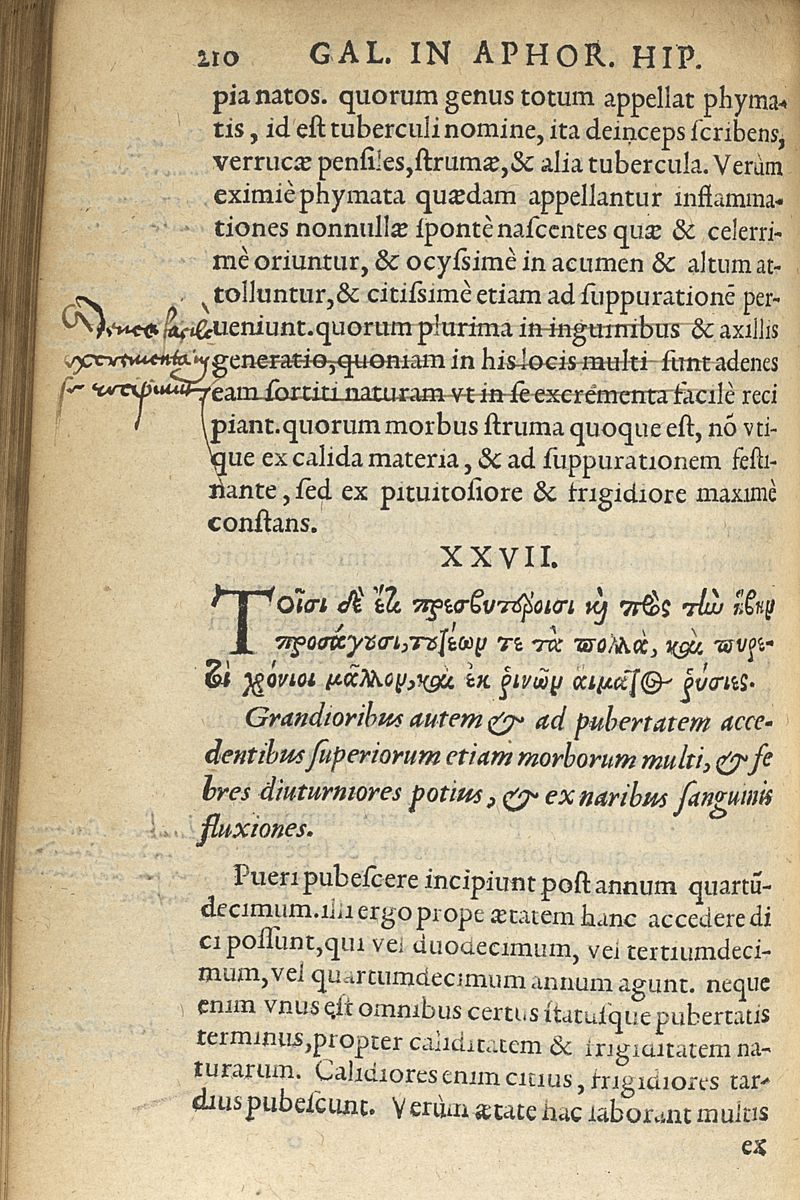 210 GAL. IN APHOR. HIP.
pia natos. quorum genus totum appellat phyma-
tis, id est tuberculi nomine, ita deinceps ſcribens,
verrucæ penſiles, ſtrumæ, & alia tubercula. Verùm
eximiè phymata quædam appellantur inflamma-
tiones nonnullæ ſpontè naſcentes quæ & celerri-
mè oriuntur, & ocyſsimè in acumen & altum at-
tolluntur, & citiſsimè etiam ad ſuppurationē per-
Adenes facile
ueniunt. quorum plurima in inguinibus & axillis
excrementa in
generatio, quoniam in his locis multi ſunt adenes
se recipiunt
eam ſortiti naturam vt in ſe excrementa facilè reci
piant. quorum morbus ſtruma quoque eſt, nō vti-
que ex calida materia, & ad ſuppurationem feſti-
nante, ſed ex pituitoſiore & frigidiore maximè
conſtans.
XXVII.
Τοῖσι δὲ ἔτι πρεσβυτέροισι καὶ πρὸς τὴν ἥβην
προσάγουσι, τουτέων τε τὰ πολλὰ, καὶ πυρε-
τοὶ χρόνιοι μᾶλλον, καὶ ἐκ ῥινῶν αἵματος ῥύσιες.
Grandioribus autem & ad pubertatem acce-
dentibus ſuperiorum etiam morborum multi, & fe
bres diuturniores potius, & ex naribus ſanguinis
fluxiones.
Pueri pubeſcere incipiunt post annum quartū-
decimum. illi ergo prope ætatem hanc accedere di
ci poſſunt, qui vel duodecimum, vel tertiumdeci-
mum, vel quartumdecimum annum agunt. neque
enim vnus eſt omnibus certus ſtatuſque pubertatis
terminus, propter caliditatem & frigiditatem na-
turarum. Calidiores enim citius, frigidiores tar-
dius pubeſcunt. Verùm ætate hac laborant multis
ex